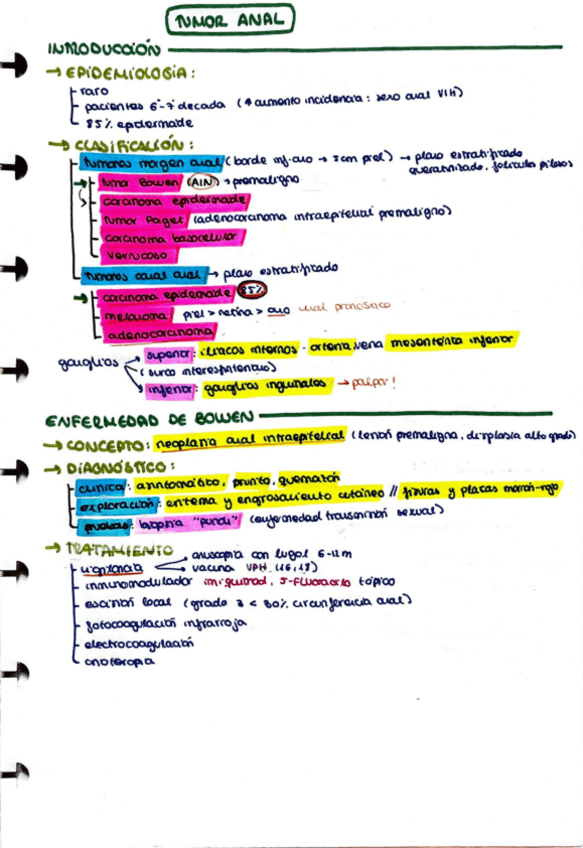 TUMOR ANAL
INTRODUCCIÓN
→ EPIDEMIOLOGÍA:
- raro
- pacientes 6ª-7ª decada (↑ aumento incidencia: sexo anal VIH)
- 85% epidermoide
→ CLASIFICACIÓN:
- tumores margen anal (borde inf. ano → 5cm piel) → plano estratificado
queratinizado, folículos pilosos
→ tumor Bowen (AIN) → premaligno
- carcinoma epidermoide
- tumor Paget (adenocarcinoma intraepitelial premaligno)
- carcinoma basocelular
- verrucoso
- tumores canal anal → plano estratificado
→ carcinoma epidermoide 85%
- melanoma piel > retina > ano mal pronóstico
- adenocarcinoma
ganglios → superior: iliacos internos - arteria, vena mesentérica inferior
(surco interesfinteriano)
→ inferior: ganglios inguinales → palpar!
ENFERMEDAD DE BOWEN
→ CONCEPTO: neoplasia anal intraepitelial (lesión premaligna, displasia alto grado)
→ DIAGNÓSTICO:
- clínica: asintomático, prurito, quemazón
- exploración: eritema y engrosamiento cutáneo // fisuras y placas marrón-rojo
- pruebas: biopsia "punch" (enfermedad transmisión sexual)
→ TRATAMIENTO
- vigilancia → anuscopia con lugol 6-12m
→ vacuna VPH (16, 18)
- inmunomodulador imiquimod, 5-Fluoracilo tópico
- escisión local (grado 3 < 50% circunferencia anal)
- fotocoagulación infrarroja
- electrocoagulación
- crioterapia